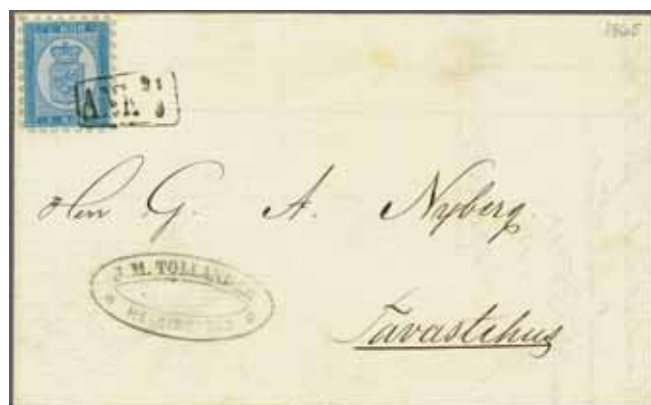 1865
ANK
Herr G. A. Nyberg.
J. M. TOLLANDER
HELSINGFORS
Tavastehus